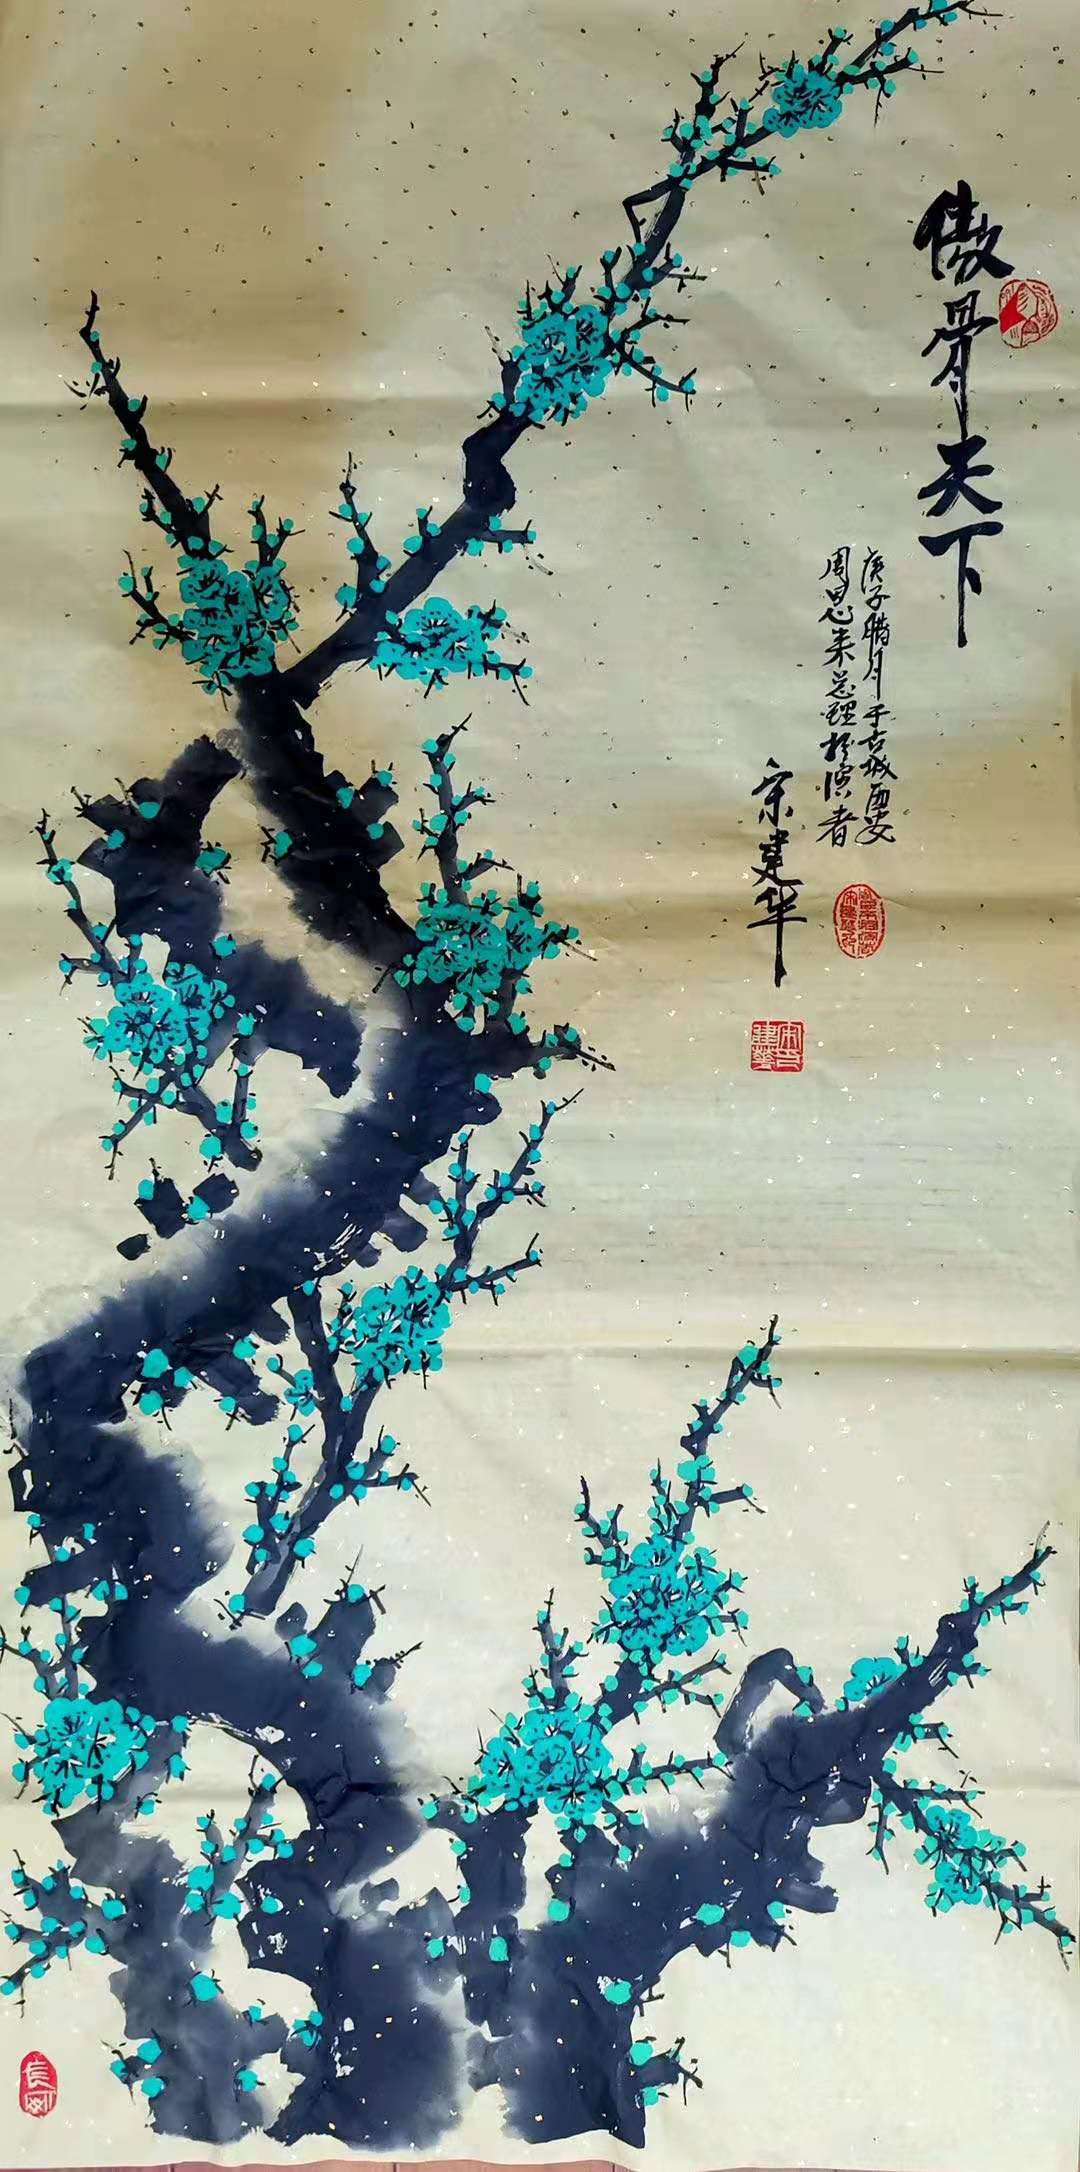 傲骨天下
庚子腊月于古城西安
周恩来总理扮演者
宋建华
宋建华
长安